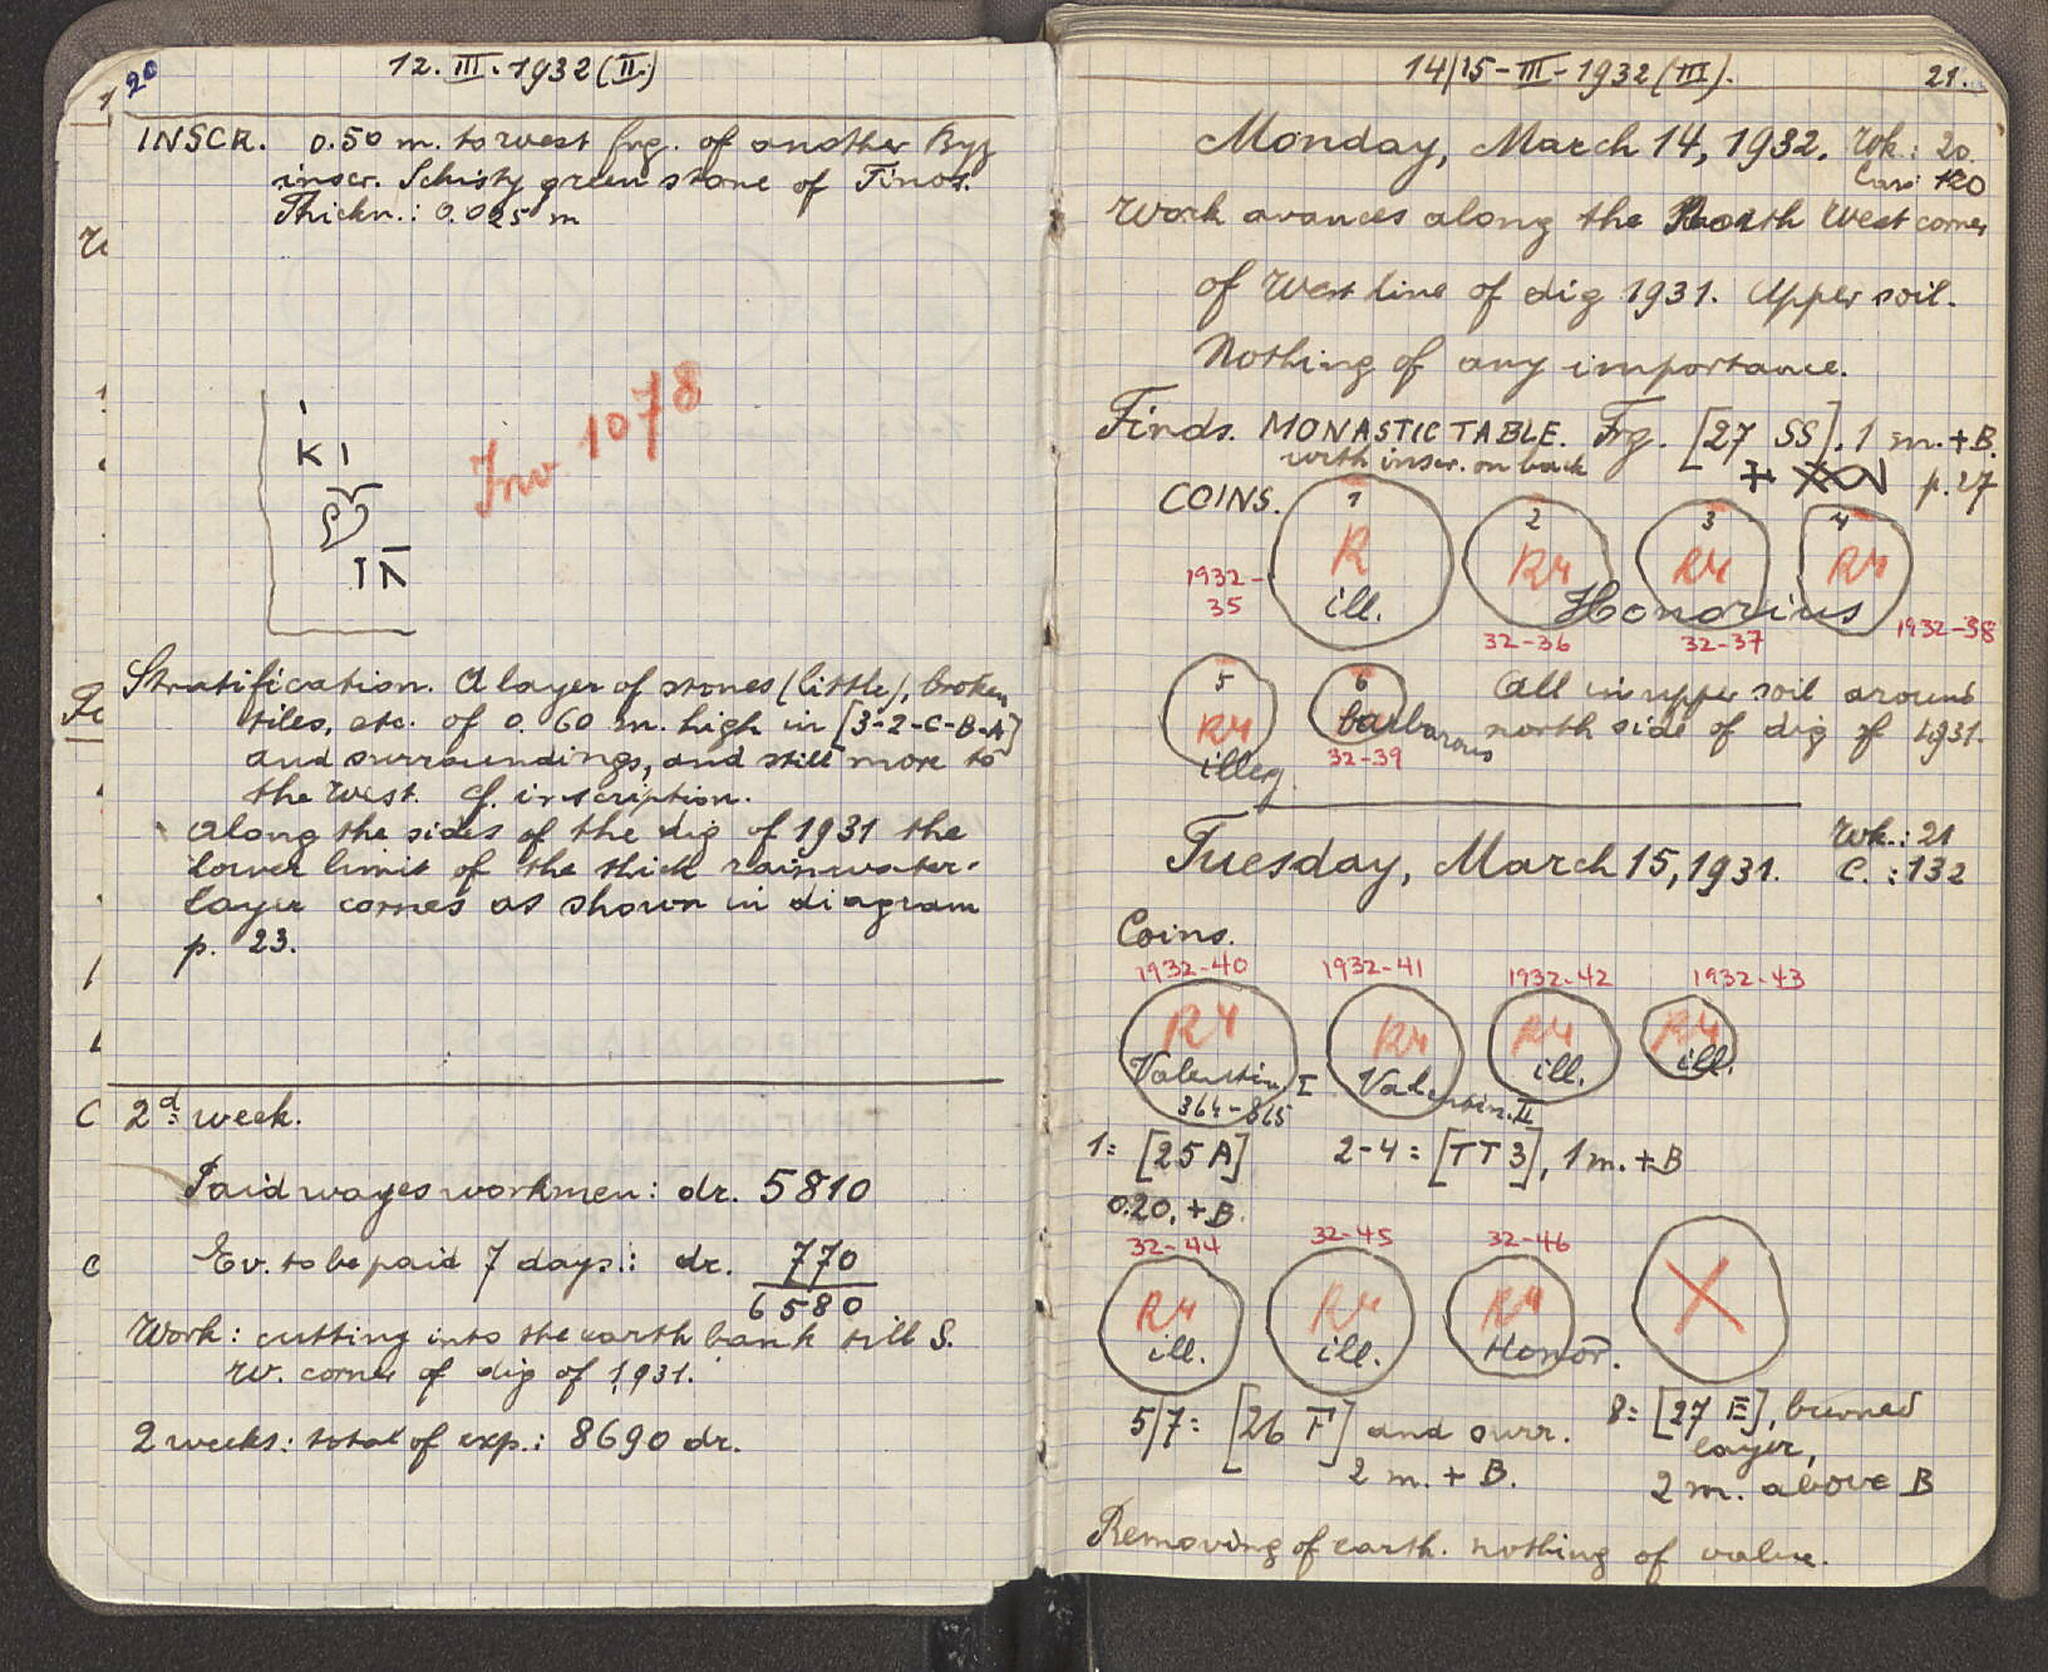 20
12. III. 1932 (II.)
INSCR. 0.50 m. to west frg. of another Byz
inscr. Schisty green stone of Tinos.
Thickn.: 0.025 m
K I
Inv 1078
Stratification. A layer of stones (little), broken
tiles, etc. of 0.60 m. high in [3-2-C-B-A]
and surroundings, and still more to
the West. Cf. inscription.
Along the sides of the dig of 1931 the
lower limit of the thick rainwater-
layer comes as shown in diagram
p. 23.
2d week.
Paid wages workmen: dr. 5810
Ev. to be paid 7 days: dr. 770
6580
Work: cutting into the earth bank till S.
W. corner of dig of 1931.
2 weeks: total of exp.: 8690 dr.
14/15-III-1932 (III).
21.
Monday, March 14, 1932. Wk.: 20.
Cars: 120
Work avances along the North West corner
of West line of dig 1931. Upper soil.
Nothing of any importance.
Finds. MONASTIC TABLE. Frg. [27 SS]. 1 m. + B.
with inscr. on back
p. 27
COINS.
1 2 3 4
R R4 R4 R4
ill. Honorius
1932-35
32-36 32-37 1932-38
5 6
R4 barbarous
illeg.
32-39
All in upper soil around
north side of dig of 1931.
Tuesday, March 15, 1931.
Wk.: 21
C.: 132
Coins.
1932-40 1932-41 1932-42 1932-43
R4 R4 R4 R4
Valentin. I Valentin. II ill. ill.
364-865
1= [25 A] 2-4= [TT 3], 1 m. + B
0.20. + B.
32-44 32-45 32-46
R4 R4 R4 X
ill. ill. Honor.
5/7= [26 F] and surr.
2 m. + B.
8= [27 E], burned
layer,
2 m. above B
Removing of earth. nothing of value.